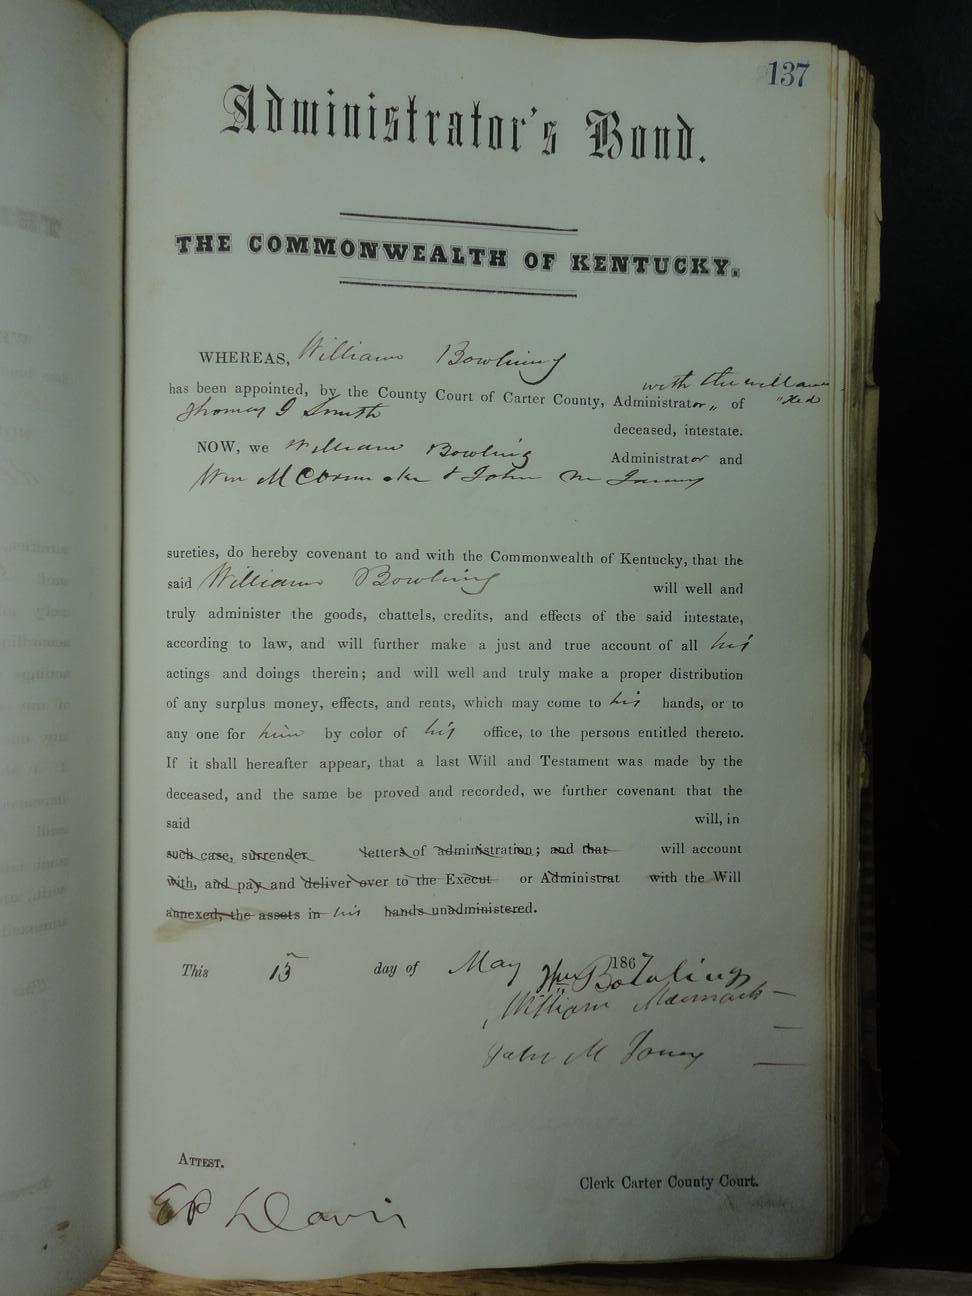 137
Administrator's Bond.
THE COMMONWEALTH OF KENTUCKY.
WHEREAS, William Bowling
has been appointed, by the County Court of Carter County, Administrator with the will annexed of
Thomas J Smith
deceased, intestate.
NOW, we William Bowling Administrator and
Wm McCormick & John M
sureties, do hereby covenant to and with the Commonwealth of Kentucky, that the
said William Bowling will well and
truly administer the goods, chattels, credits, and effects of the said intestate,
according to law, and will further make a just and true account of all his
actings and doings therein; and will well and truly make a proper distribution
of any surplus money, effects, and rents, which may come to his hands, or to
any one for him by color of his office, to the persons entitled thereto.
If it shall hereafter appear, that a last Will and Testament was made by the
deceased, and the same be proved and recorded, we further covenant that the
said will, in
such case, surrender letters of administration; and that will account
with, and pay and deliver over to the Execut or Administrat with the Will
annexed, the assets in his hands unadministered.
This 13 day of May 1867
Wm Bowling
William
John M
ATTEST.
Clerk Carter County Court.
Davis